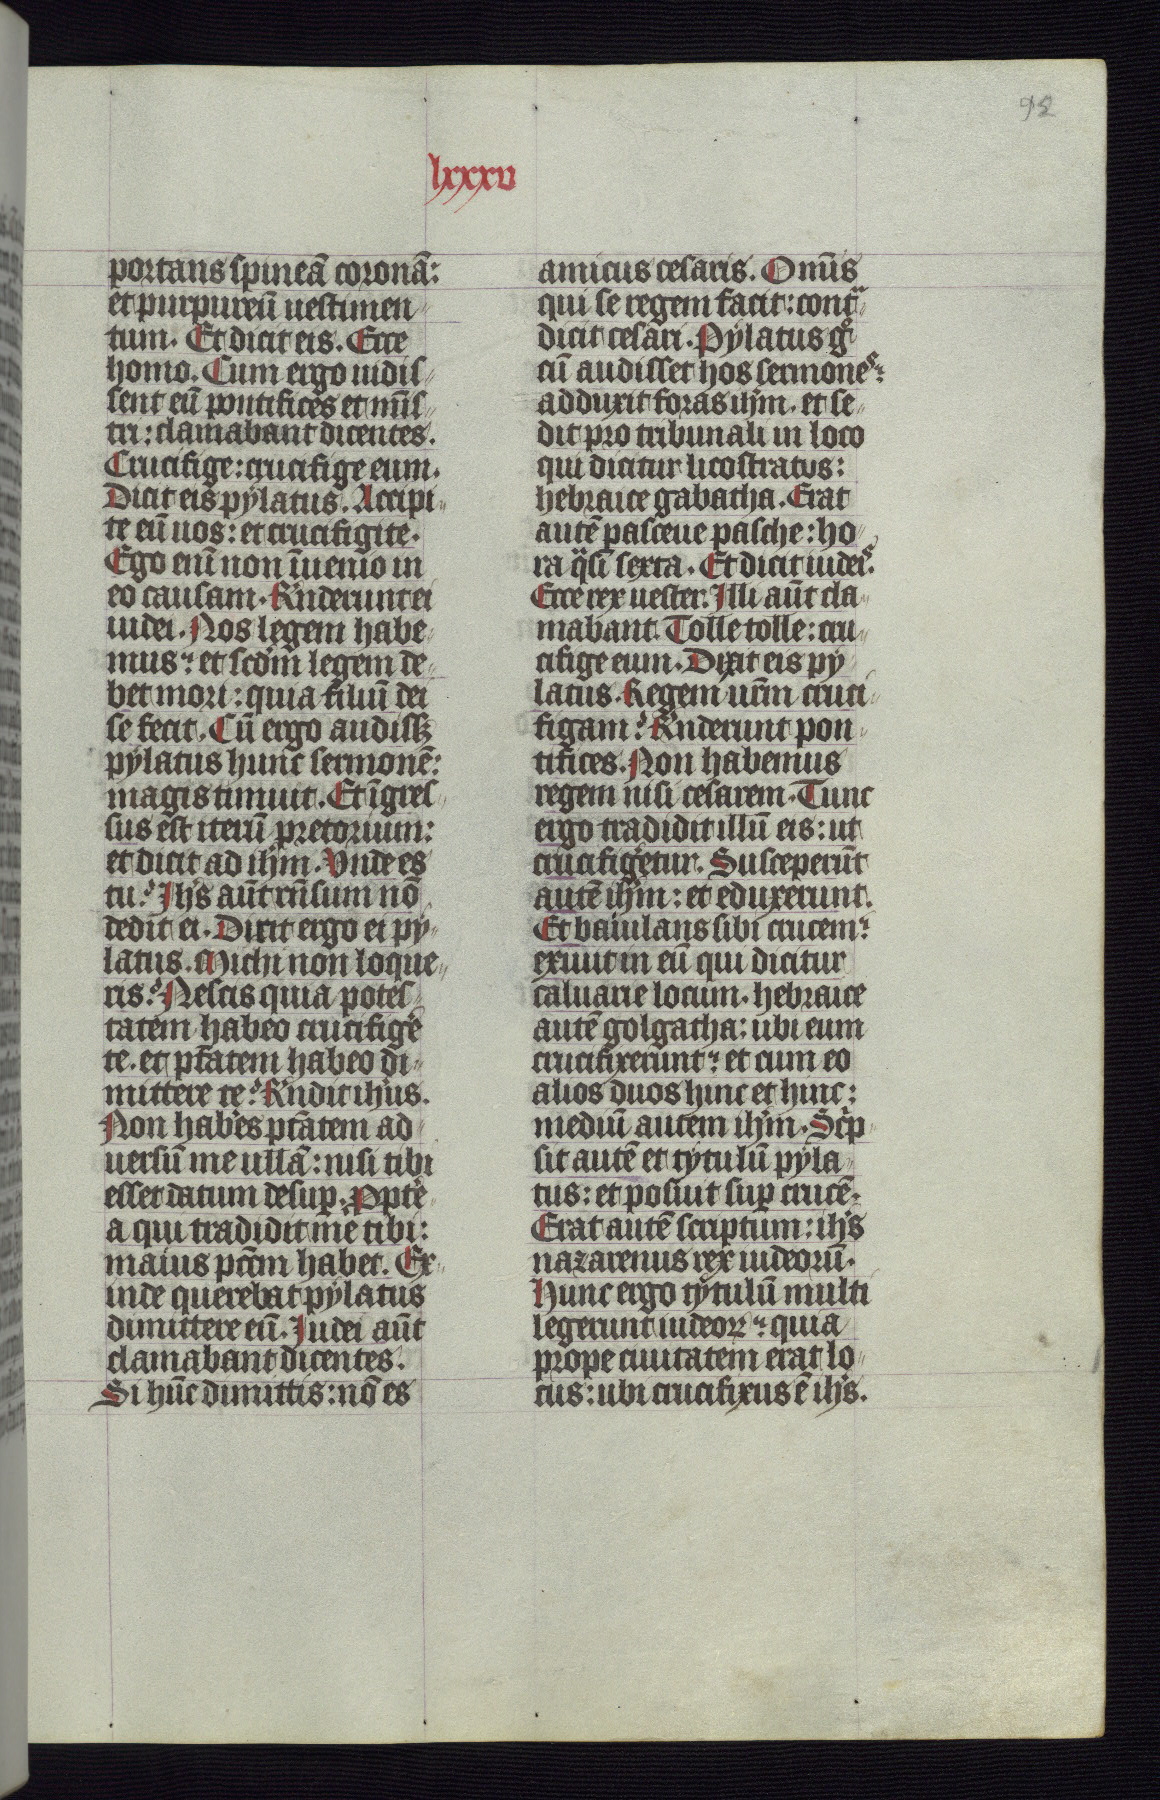 92
lxxxv
portans spineā coronā:
et purpureū uestimen
tum. Et dicit eis. Ecce
homo. Cum ergo uidis
sent eū pontifices et mīs
tri: clamabant dicentes.
Crucifige: crucifige eum.
Dicit eis pylatus. Accipi
te eū uos: et crucifigite.
Ego enī non īuenio in
eo causam. Rn̄derunt ei
iudei. Nos legem habe
mus: et scd̄m legem de
bet mori: quia filiū dei
se fecit. Cū ergo audissꝫ
pylatus hunc sermonē:
magis timuit. Et īgres
sus est iterū pretorium:
et dicit ad ih̄m. Vnde es
tu? Ih̄s aūt rn̄sum nō
dedit ei. Dixit ergo ei py
latus. Michi non loque
ris? Nescis quia potes
tatem habeo crucifige
te. et ptātem habeo di
mittere te? Rn̄dit ih̄us.
Non habes ptātem ad
uersū me ullā: nisi tibi
esset datum desuꝑ. Ꝓpte
a qui tradidit me tibi:
maius pctm̄ habet. Ex
inde querebat pylatus
dimittere eū. Iudei aūt
clamabant dicentes.
Si hūc dimittis: nō es
amicus cesaris. Omīs
qui se regem facit: contᵃ
dicit cesari. Pylatus gͦ
cū audisset hos sermones:
adduxit foras ih̄m. et se
dit pro tribunali in loco
qui dicitur licostratos:
hebraice gabatha. Erat
autē parasceue pasche: ho
ra qᵃsi sexta. Et dicit iudeis.
Ecce rex uester. Illi aūt cla
mabant. Tolle tolle: cru
cifige eum. Dixit eis py
latus. Regem ur̄m cruci
figam? Rn̄derunt pon
tifices. Non habemus
regem nisi cesarem. Tunc
ergo tradidit illū eis: ut
crucifigetur. Susceperūt
autē ih̄m: et eduxerunt.
Et baiulans sibi crucem:
exiuit in eū qui dicitur
caluarie locum. hebraice
autē golgatha: ubi eum
crucifixerunt: et cum eo
alios duos hinc et hinc:
mediū autem ih̄m. Scͥp
sit autē et tytulū pyla
tus: et posuit suꝑ crucē.
Erat autē scriptum: ih̄s
nazarenus rex iudeorū.
Hunc ergo tytulū multi
legerunt iudeoꝝ: quia
prope ciuitatem erat lo
cus: ubi crucifixus ē ih̄s.